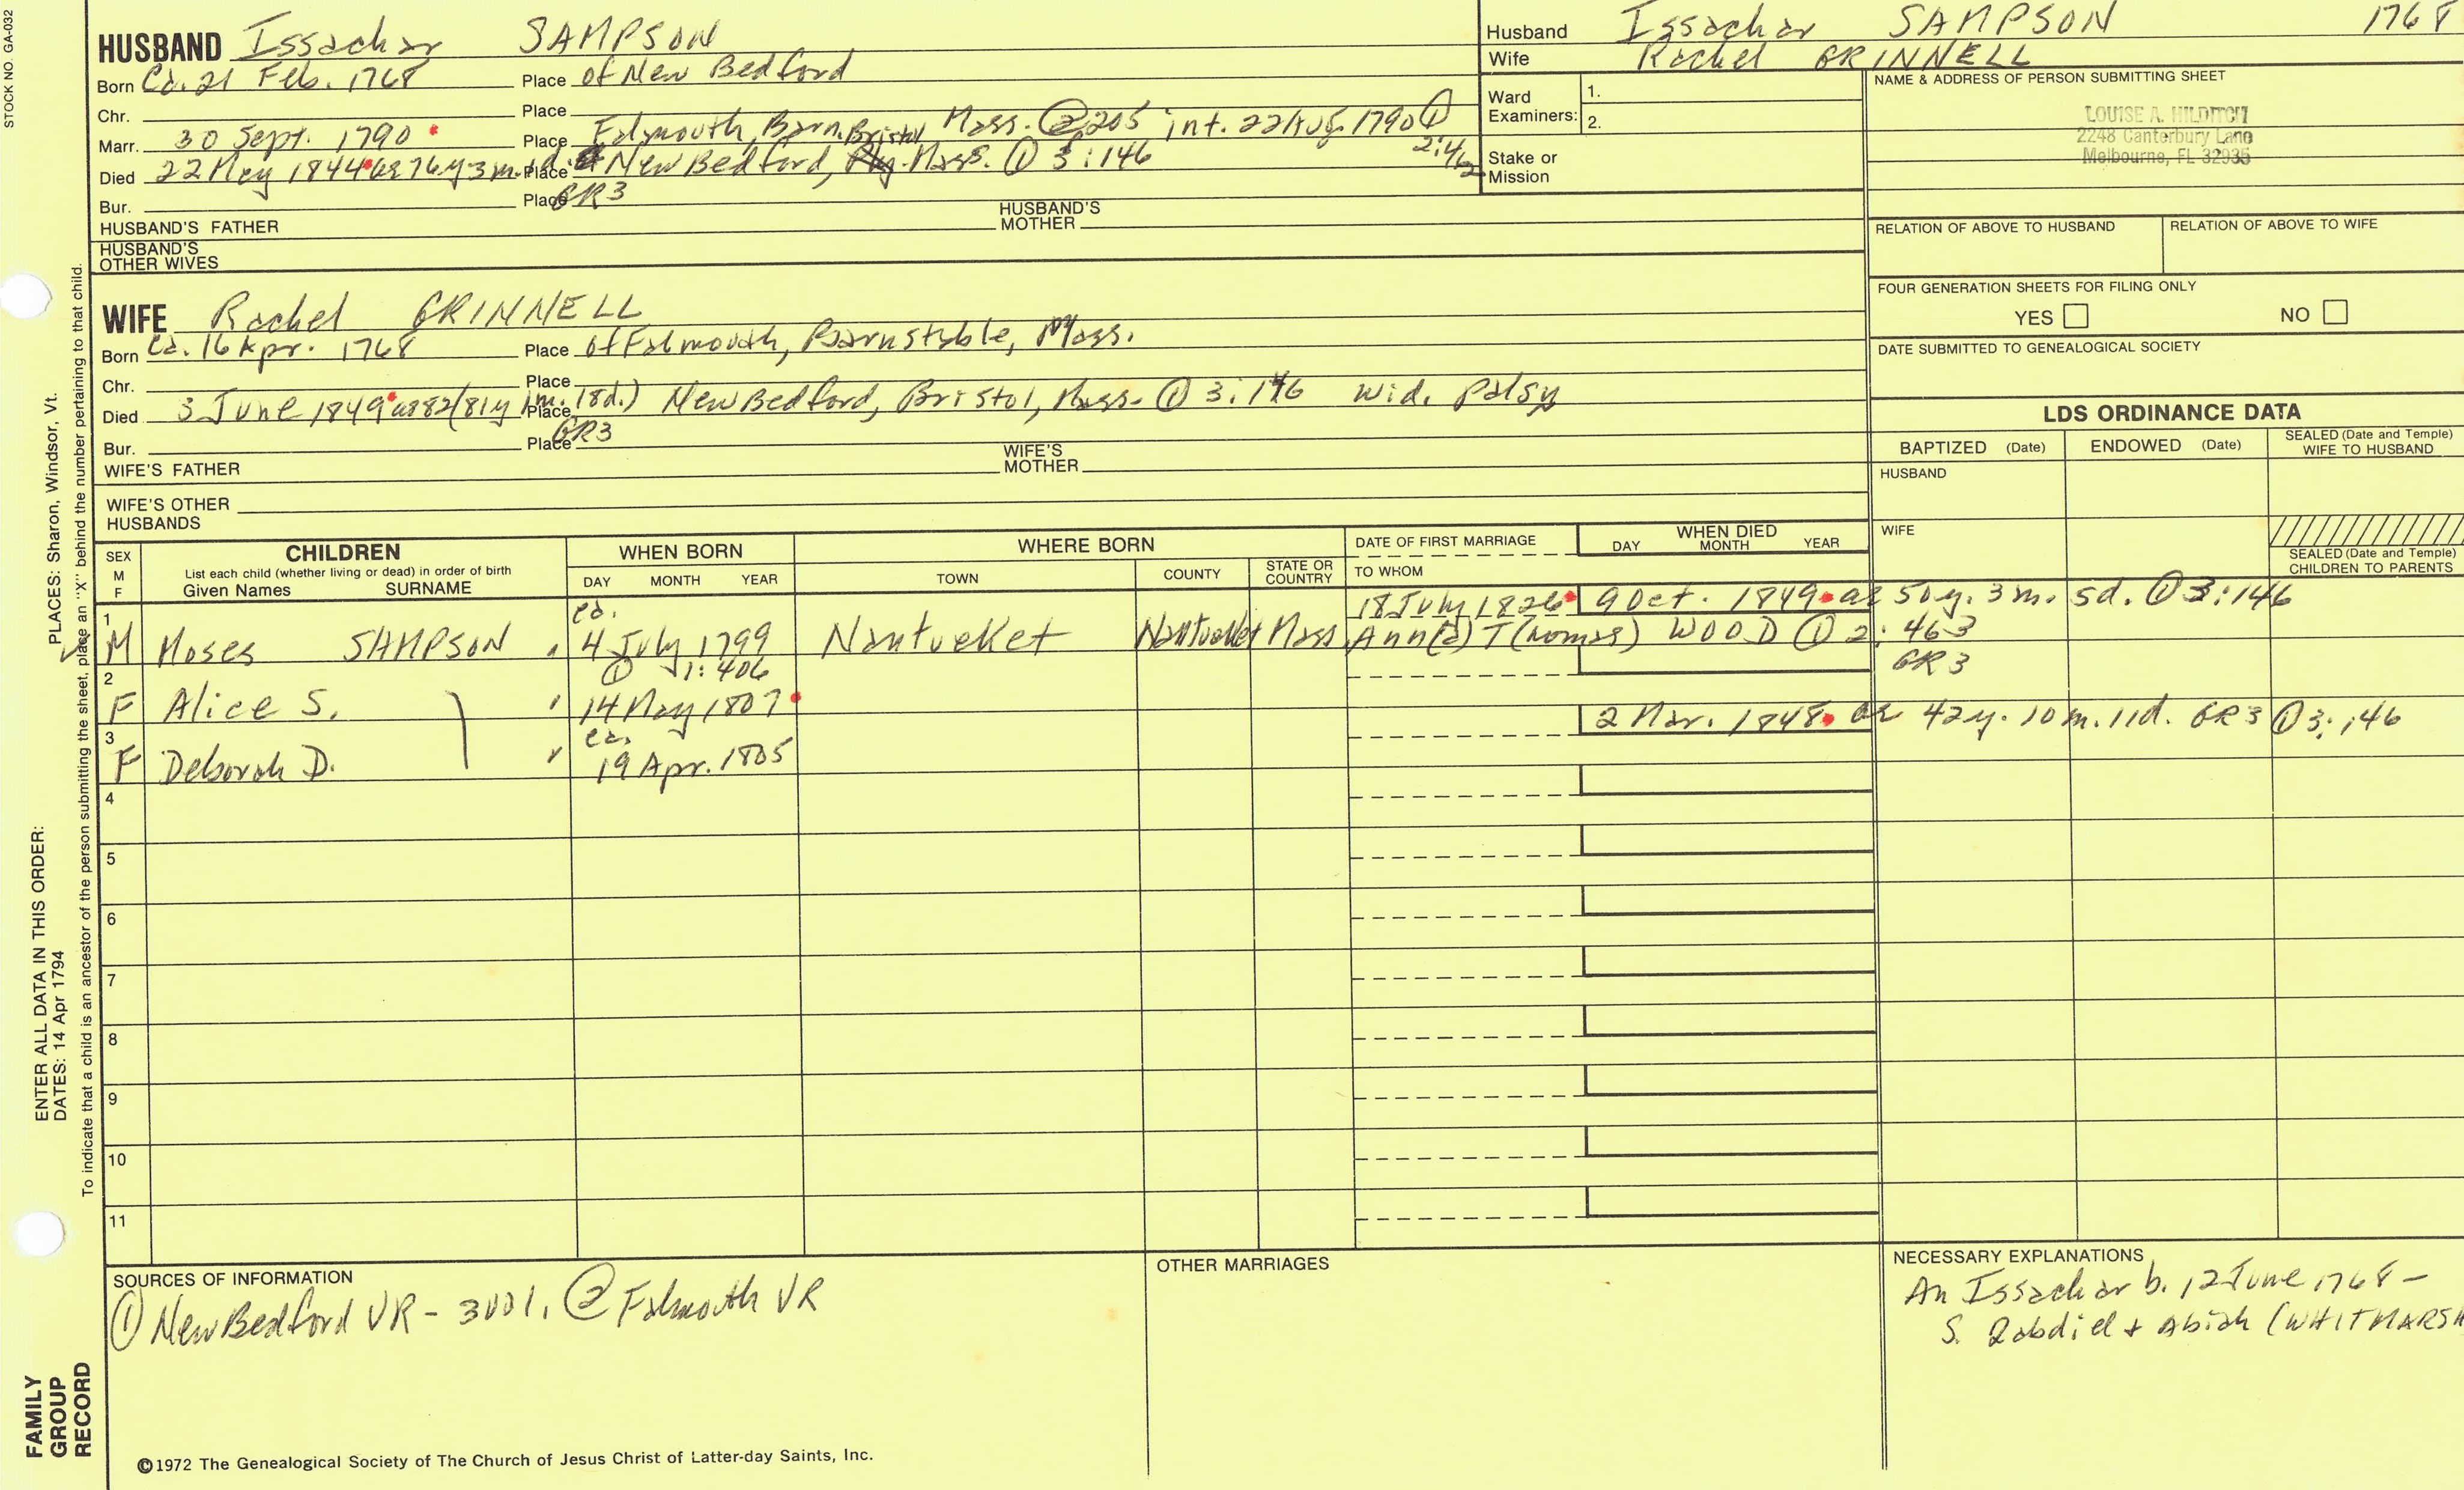 STOCK NO. GA-032
HUSBAND Issachar SAMPSON
Born Ca. 21 Feb. 1768 Place of New Bedford
Chr. Place
Marr. 30 Sept. 1790 Place Falmouth, Barn. Bristol, Mass. @ 205 int. 22 Aug. 1790 ①
2:462
Died 22 May 1844 ae 76y 3m. d. Place New Bedford, Mass. ① 3:146
Bur. Place GR3
HUSBAND'S FATHER HUSBAND'S MOTHER
HUSBAND'S OTHER WIVES
WIFE Rachel GRINNELL
Born Ca. 16 Apr. 1768 Place of Falmouth, Barnstable, Mass.
Chr. Place
Died 3 June 1849 ae 82 (81y 1m. 18d.) Place New Bedford, Bristol, Mass. ① 3:146 Wid. palsy
Bur. Place GR3
WIFE'S FATHER WIFE'S MOTHER
WIFE'S OTHER HUSBANDS
Husband Issachar SAMPSON 1768
Wife Rachel GRINNELL
Ward Examiners: 1.
2.
Stake or Mission
NAME & ADDRESS OF PERSON SUBMITTING SHEET
LOUISE A. HILDITCH
2248 Canterbury Lane
Melbourne, FL 32935
RELATION OF ABOVE TO HUSBAND RELATION OF ABOVE TO WIFE
FOUR GENERATION SHEETS FOR FILING ONLY
YES NO
DATE SUBMITTED TO GENEALOGICAL SOCIETY
LDS ORDINANCE DATA
BAPTIZED (Date) ENDOWED (Date) SEALED (Date and Temple) WIFE TO HUSBAND
HUSBAND
WIFE
SEALED (Date and Temple) CHILDREN TO PARENTS
SEX M F CHILDREN WHEN BORN WHERE BORN DATE OF FIRST MARRIAGE WHEN DIED
List each child (whether living or dead) in order of birth
Given Names SURNAME DAY MONTH YEAR TOWN COUNTY STATE OR COUNTRY TO WHOM DAY MONTH YEAR
1 ca. 18 July 1826 9 Oct. 1849 ae 50y. 3m. 5d. ① 3:146
M Moses SAMPSON 4 July 1799 Nantucket Nantucket Mass Ann(a) T(homas) WOOD ① 2:463
2 ① 1:406 GR3
F Alice S. 14 May 1807
3 ca. 2 Mar. 1848 ae 42y. 10m. 11d. GR3 ① 3:146
F Deborah D. 19 Apr. 1805
4
5
6
7
8
9
10
11
SOURCES OF INFORMATION
① New Bedford VR - 3 vol. @ Falmouth VR
OTHER MARRIAGES
NECESSARY EXPLANATIONS
An Issachar b. 12 June 1768 -
S. Zabdiel + Abiah (WHITMARSH
©1972 The Genealogical Society of The Church of Jesus Christ of Latter-day Saints, Inc.
ENTER ALL DATA IN THIS ORDER:
DATES: 14 Apr 1794 PLACES: Sharon, Windsor, Vt.
To indicate that a child is an ancestor of the person submitting the sheet, place an "X" behind the number pertaining to that child.
FAMILY
GROUP
RECORD